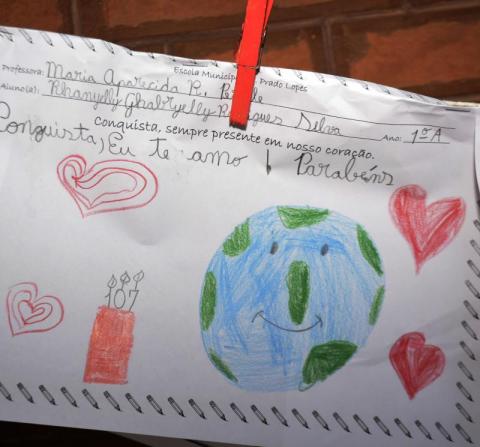 Escola Municipal Prado Lopes
Professora: Maria Aparecida
Aluno(a): Silva
Ano: 1º A
Conquista, sempre presente em nosso coração.
Conquista, Eu te amo! Parabéns
107